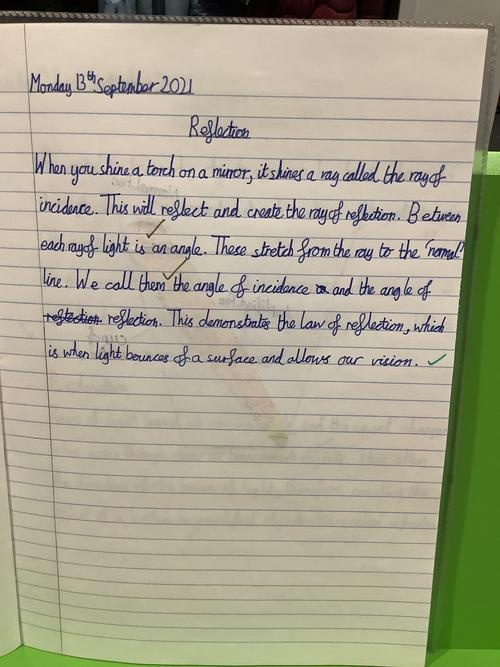 Monday 13th September 2021
Reflection
When you shine a torch on a mirror, it shines a ray called the ray of
incidence. This will reflect and create the ray of reflection. Between
each ray of light is an angle. These stretch from the ray to the 'normal'
line. We call them the angle of incidence and the angle of
reflection. This demonstrates the law of reflection, which
is when light bounces of a surface and allows our vision.